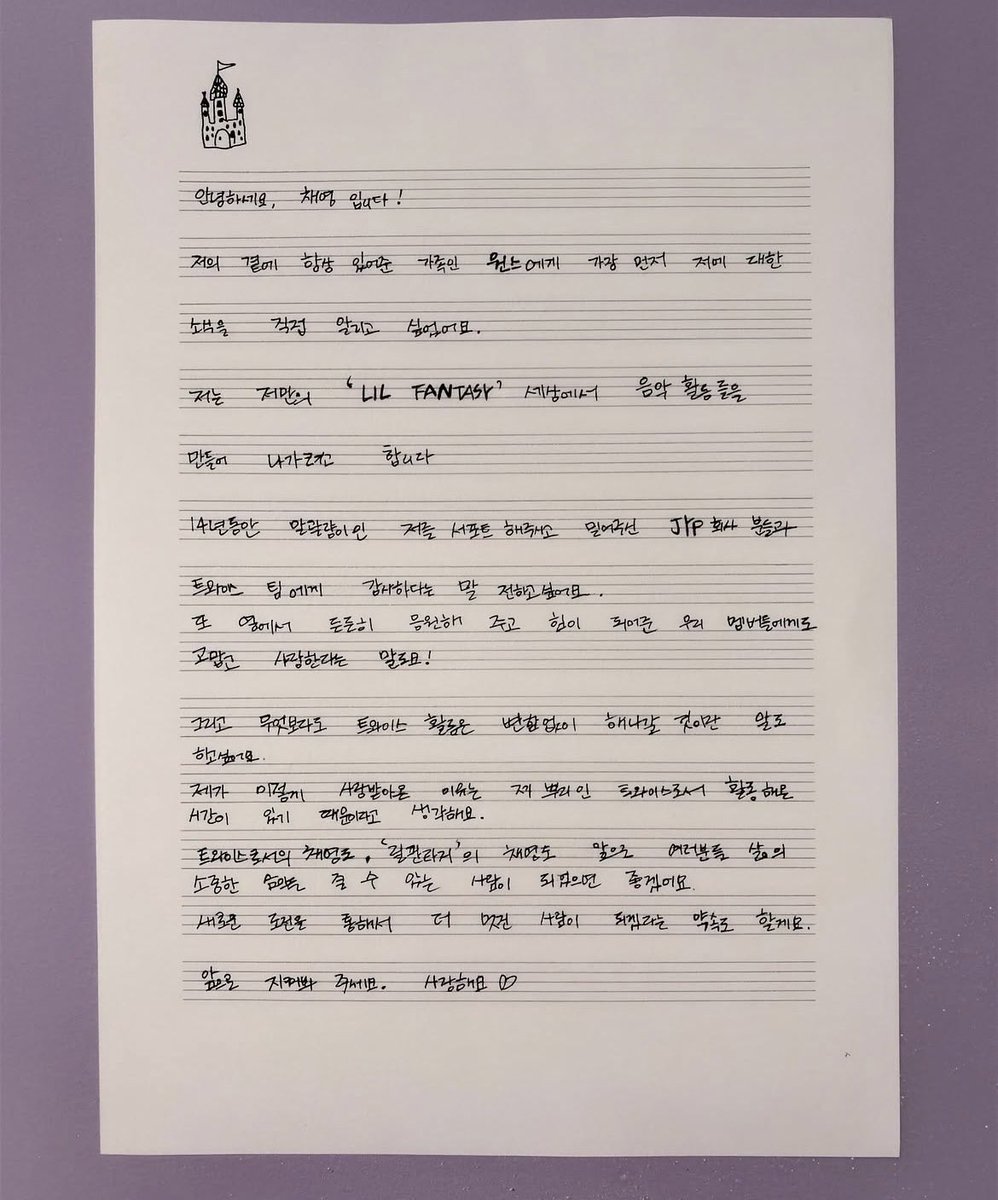 안녕하세요, 채영 입니다!
저의 곁에 항상 있어준 가족인 원스에게 가장 먼저 저에 대한
소식을 직접 알리고 싶었어요.
저는 저만의 'LIL FANTASY' 세상에서 음악 활동들을
만들어 나가려고 합니다
14년동안 말괄량이인 저를 서포트 해주시고 밀어주신 JYP 회사 분들과
트와이스 팀에게 감사하다는 말 전하고싶어요.
또 옆에서 든든히 응원해 주고 힘이 되어준 우리 멤버들에게도
고맙고 사랑한다는 말도요!
그리고 무엇보다도 트와이스 활동은 변함없이 해나갈 것이란 말도
하고싶어요.
제가 이렇게 사랑받아온 이유는 제 뿌리인 트와이스로서 활동해온
시간이 있기 때문이라고 생각해요.
트와이스로서의 채영도, '릴판타지'의 채영도 앞으로 여러분들 삶의
소중한 의 줄 수 있는 사람이 되었으면 좋겠어요.
새로운 도전을 통해서 더 멋진 사람이 되겠다는 약속도 할게요.
앞으로 지켜봐 주세요. 사랑해요♡